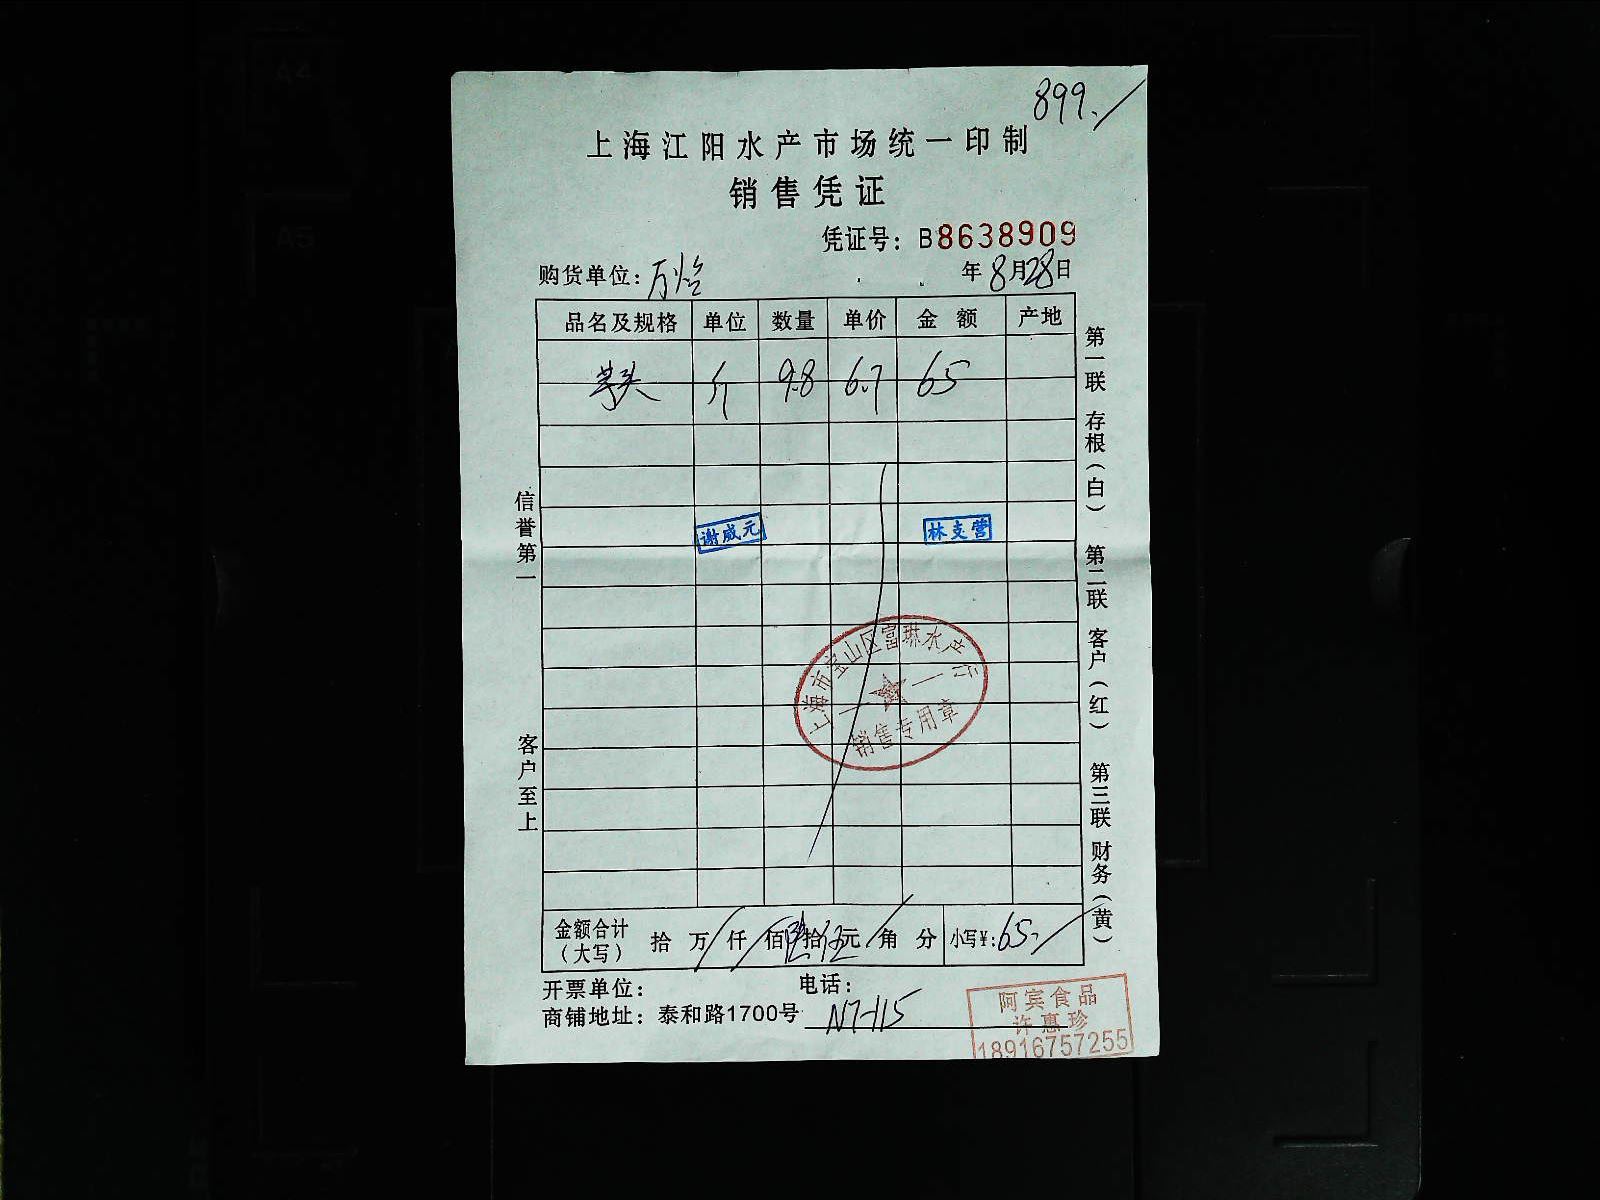 899./
上海江阳水产市场统一印制
销售凭证
凭证号：B8638909
购货单位：万怡 年8月28日
品名及规格 单位 数量 单价 金额 产地
芋头 斤 9.8 6.7 65
谢威元 林支营
上海市宝山区富琳水产行
销售专用章
金额合计（大写） 拾 万 仟 佰 陆拾伍元 角 分 小写¥：65./
开票单位： 电话：
商铺地址：泰和路1700号 N7-115
阿宾食品
许惠珍
18916757255
信誉第一 客户至上
第一联 存根（白） 第二联 客户（红） 第三联 财务（黄）
A4
A5